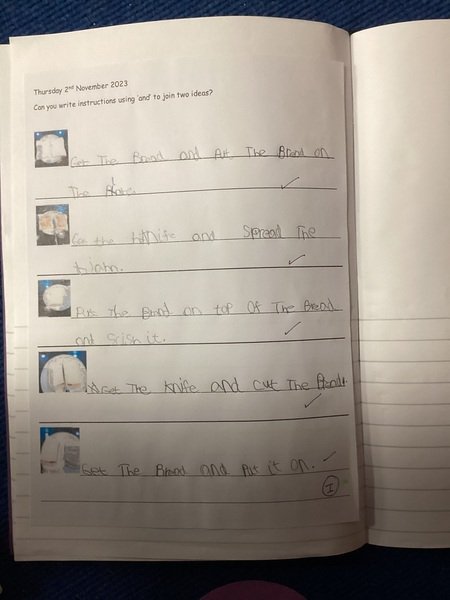 Thursday 2nd November 2023
Can you write instructions using 'and' to join two ideas?
Get The Bread and Put The Bread on
The Plate.
Get the knife and Spread The
Put The Bread on top OF The Bread
and
Get The knife and cut The Bread.
Get The Bread and Put it on.
I